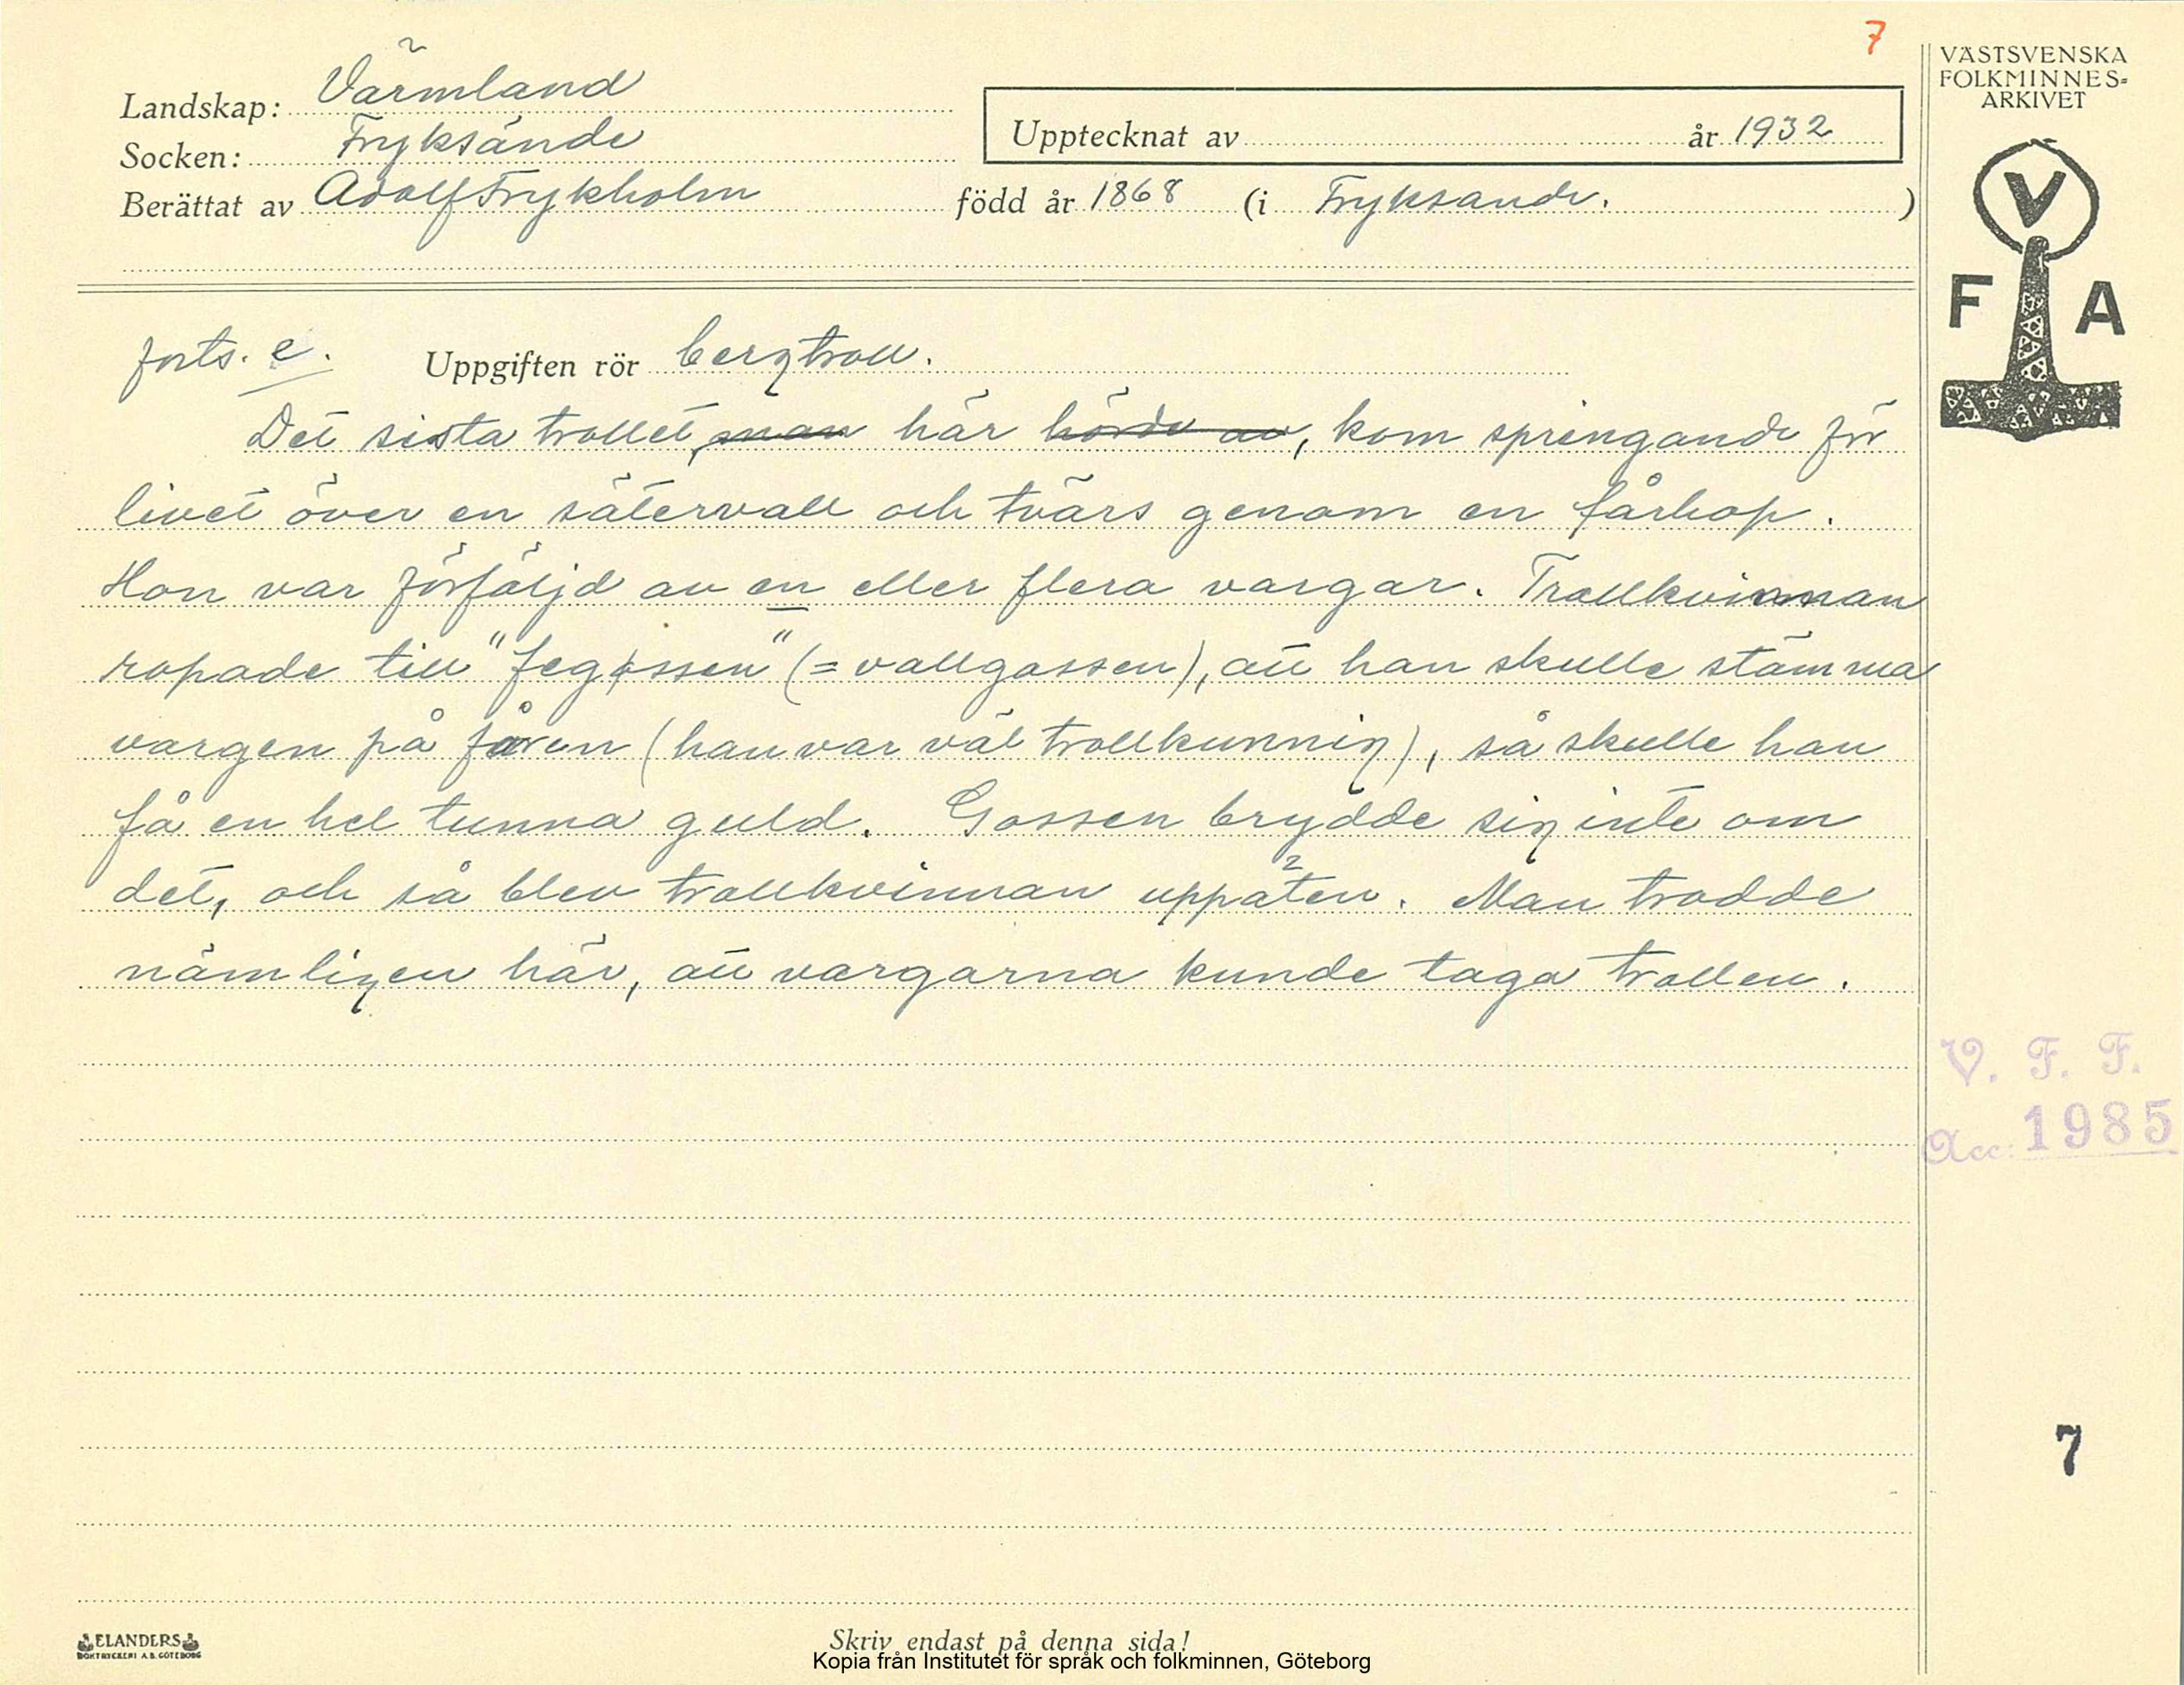 7
VÄSTSVENSKA
FOLKMINNES-
ARKIVET
Landskap: Värmland
Socken: Fryksände
Upptecknat av år 1932
Berättat av Adolf Frykholm född år 1868 (i Fryksände. )
V
F A
forts. e. Uppgiften rör bergtroll.
Det sista trollet, man här hörde av, kom springande för
livet över en sätervall och tvärs genom en fårhop.
Hon var förföljd av en eller flera vargar. Trollkvinnan
ropade till "feg ssen" (= vallgossen), att han skulle stämma
vargen på fåren (han var väl trollkunnig), så skulle han
få en hel tunna guld. Gossen brydde sig inte om
det, och så blev trollkvinnan uppäten. Man trodde
nämligen här, att vargarna kunde taga trollen.
V. F. F.
Acc: 1985
7
ELANDERS
BOKTRYCKERI A.B. GÖTEBORG
Skriv endast på denna sida!
Kopia från Institutet för språk och folkminnen, Göteborg